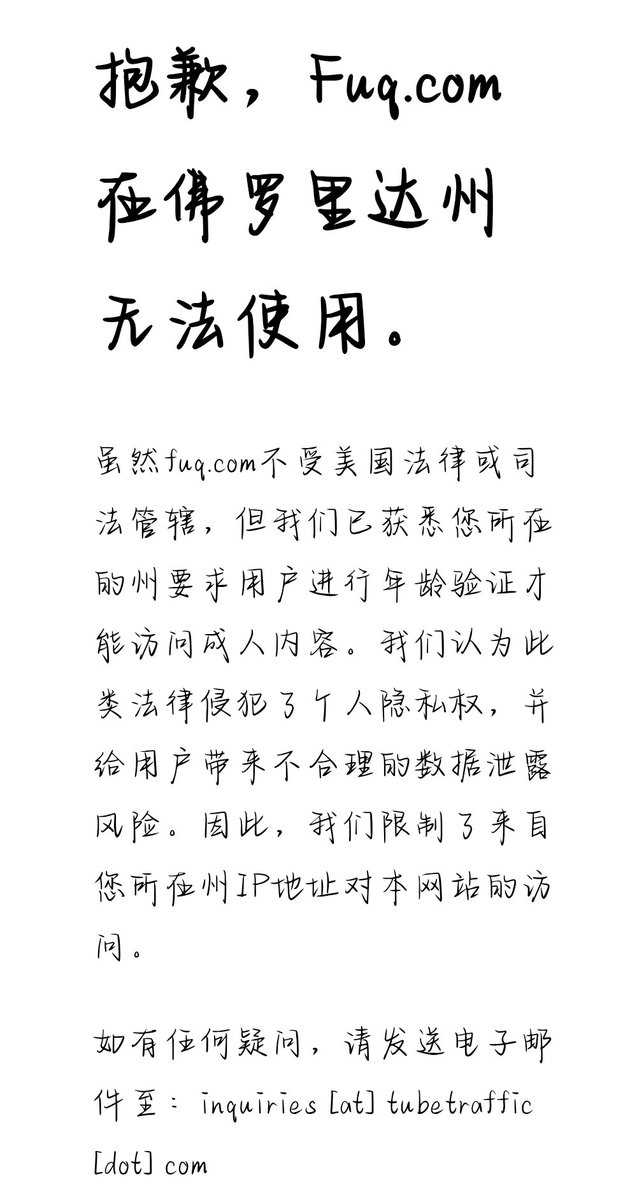 抱歉，Fuq.com
在佛罗里达州
无法使用。
虽然fuq.com不受美国法律或司
法管辖，但我们已获悉您所在
的州要求用户进行年龄验证才
能访问成人内容。我们认为此
类法律侵犯了个人隐私权，并
给用户带来不合理的数据泄露
风险。因此，我们限制了来自
您所在州IP地址对本网站的访
问。
如有任何疑问，请发送电子邮
件至：inquiries [at] tubetraffic
[dot] com